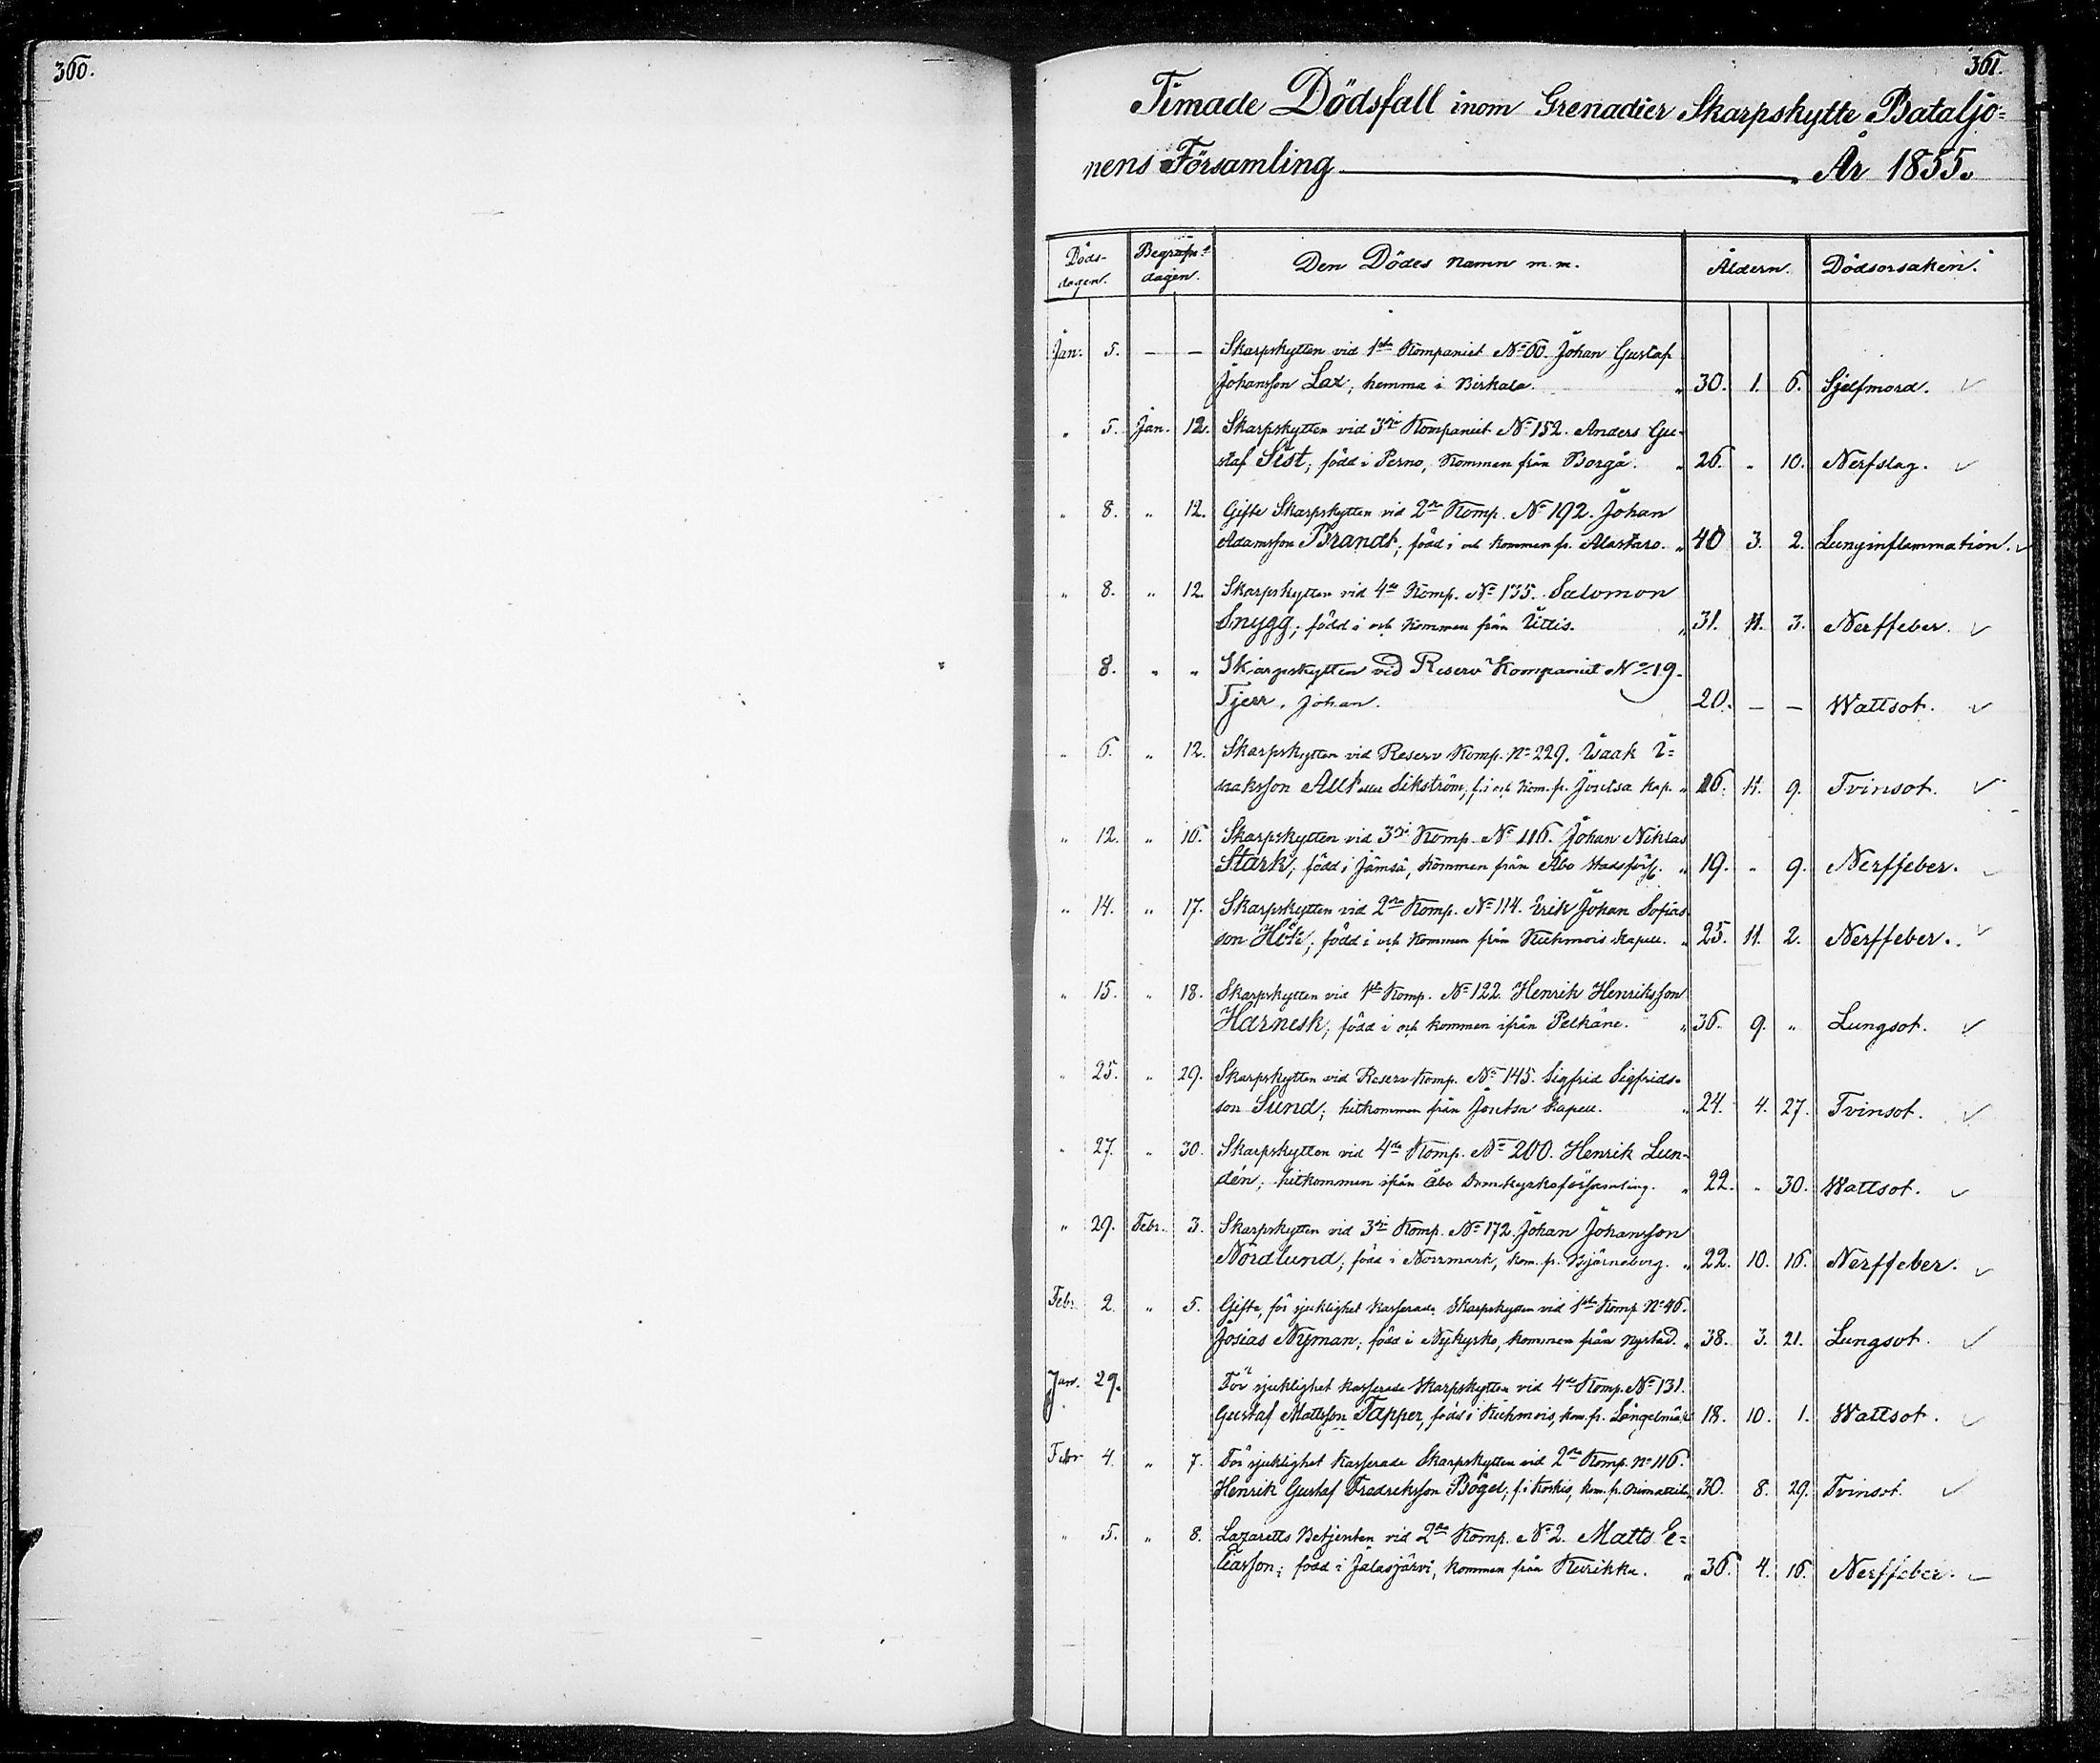 360.
361.
Timade Dödsfall inom Grenadier Skarpskytte Bataljo=
nens Församling. År 1855.
Döds- dagen. Begrafn.s dagen. Den Dödes Namn m.m. Åldern. Dödsorsaken.
Jan. 5. — — Skarpskytten vid 1sta Kompaniet No 60. Johan Gustaf
Johansson Lax, hemma i Birkala. „ 30. 1. 6. Sjelfmord.
„ 5. Jan. 12. Skarpskytten vid 3dje Kompaniet No 152. Anders Gu-
staf Sist, född i Perno, kommen från Borgå. „ 26. „ 10. Nerfslag.
„ 8. „ 12. Gifte Skarpskytten vid 2dra Komp. No 192. Johan
Adamsson Brandt, född i och kommen fr. Alastaro. „ 40 3. 2. Lunginflammation.
„ 8. „ 12. Skarpskytten vid 4de Komp. No 135. Salomon
Snygg, född i och kommen från Uttis. „ 31. 11. 3. Nerffeber.
8. „ „ Skarpskytten vid Reserv Kompaniet No 19.
Tjerr, Johan. 20. — — Wattsot.
„ 6. „ 12. Skarpskytten vid Reserv Komp. No 229. Isaak I=
saksson Allt eller Sikström, f. i och kom. fr. Joutsa kap. „ 26. 11. 9. Tvinsot.
„ 12. „ 16. Skarpskytten vid 3dje Komp. No 116. Johan Niklas
Stark, född i Jämsä, kommen från Åbo Stadsförs. „ 19. „ 9. Nerffeber.
„ 14. „ 17. Skarpskytten vid 2dra Komp. No 114. Erik Johan Sofias
son Hök, född i och kommen från Kuhmois Kapell. „ 25. 11. 2. Nerffeber.
„ 15. „ 18. Skarpskytten vid 1sta Komp. No 122. Henrik Henriksson
Harnesk, född i och kommen ifrån Pelkäne. „ 36. 9. „ Lungsot.
„ 25. „ 29. Skarpskytten vid Reserv Komp. No 145. Sigfrid Sigfrids-
son Sund, hitkommen från Joutsa Kapell. „ 24. 4. 27. Tvinsot.
„ 27. „ 30. Skarpskytten vid 4de Komp. No 200. Henrik Lun-
dén, hitkommen ifrån Åbo Domkyrkoförsamling. „ 22. „ 30. Wattsot.
„ 29. Febr. 3. Skarpskytten vid 3dje Komp. No 172. Johan Johansson
Nordlund, född i Norrmark, kom. fr. Björneborg. „ 22. 10. 16. Nerffeber.
Febr. 2. „ 5. Gifte, för sjuklighet kasserade Skarpskytten vid 1sta Komp. No 46.
Josias Nyman, född i Nykyrko, kommen från Nystad. „ 38. 3. 21. Lungsot.
Jan. 29. För sjuklighet kasserade Skarpskytten vid 4de Komp. No 131.
Gustaf Mattsson Tapper, född i Kuhmois, kom. fr. Längelmäki 18. 10. 1. Wattsot.
Febr 4. „ 7. För sjuklighet kasserade Skarpskytten vid 2dra Komp. No 116.
Henrik Gustaf Fredriksson Bögel, f. i Koskis, kom. fr. Orimattila 30. 8. 29. Tvinsot.
„ 5. „ 8. Lazaretts Betjenten vid 2dra Komp. No 2. Matts E=
liasson, född i Jalasjärvi, kommen från Kurikka. „ 36. 4. 16. Nerffeber.